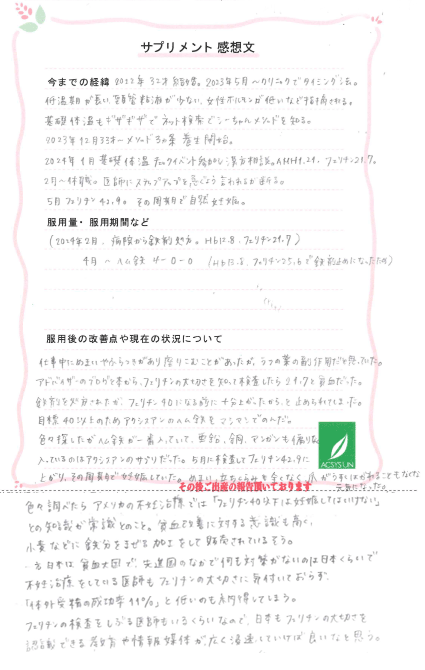 サプリメント 感想文
今までの経緯 2022年 32才 結婚。2023年5月〜クリニックでタイミング法。
低温期が長い、頸管粘液が少ない、女性ホルモンが低いなど指摘される。
基礎体温もギザギザで ネット検索でしーちゃんメソッドを知る。
2023年12月33才〜メソッド3カ条 養生 開始。
2024年1月 基礎体温 漢方相談。AMH1.21、フェリチン21.7。
2月〜休職。医師にステップアップを急ぐよう言われるが断る。
5月 フェリチン42.9。その周期で自然妊娠。
服用量・服用期間など
(2024年2月、病院から鉄剤処方。Hb13.8、フェリチン21.7)
4月〜ヘム鉄 4-0-0 (Hb13.5、フェリチン25.6で鉄剤止めになったため)
服用後の改善点や現在の状況について
仕事中にめまいやふらつきがあり座りこむことがあったが、うつの薬の副作用だと思っていた。
アドバイザーのブログと本から、フェリチンの大切さを知って検査したら21.7と貧血だった。
鉄剤を処方されたが、フェリチン40になる前に十分上がったからと止められてしまった。
目標40以上のためアクシアンのヘム鉄をマシマシでのんだ。
色々探したがヘム鉄が一番入っていて、亜鉛、銅、マンガンも
入っているのはアクシアンのサプリだった。5月に検査してフェリチン42.9に
上がり、その周期で妊娠していた。めまい、立ちくらみも全くなく、爪がうすいはがれることもなくな
元気になった。
ACSYSLIN
その後ご出産の報告頂いております
色々調べたら アメリカの不妊治療では「フェリチン40以下は妊娠してはいけない」
との知識が常識とのこと。貧血改善に対する意識も高く、
小麦などに鉄分をまぜる加工をして販売されているそう。
日本は貧血大国で、先進国のなかで何も対策がないのは日本くらいで
不妊治療をしている医師もフェリチンの大切さに気付いておらず、
「体外受精の成功率11%」と低いのも納得してしまう。
フェリチンの検査をしぶる医師もいるくらいなので、日本もフェリチンの大切さを
認識できる教育や情報媒体が広く浸透していけば良いなと思う。